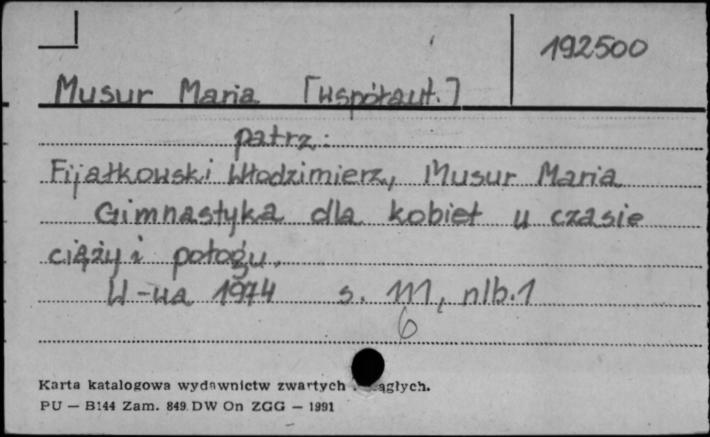 192500
Musur Maria [współaut.]
patrz:
Fijałkowski Włodzimierz, Musur Maria
Gimnastyka dla kobiet w czasie
ciąży i połogu.
W-wa 1974 s. 111, nlb. 1
6
Karta katalogowa wydawnictw zwartych ągłych.
PU — B144 Zam. 849 DW On ZGG — 1991